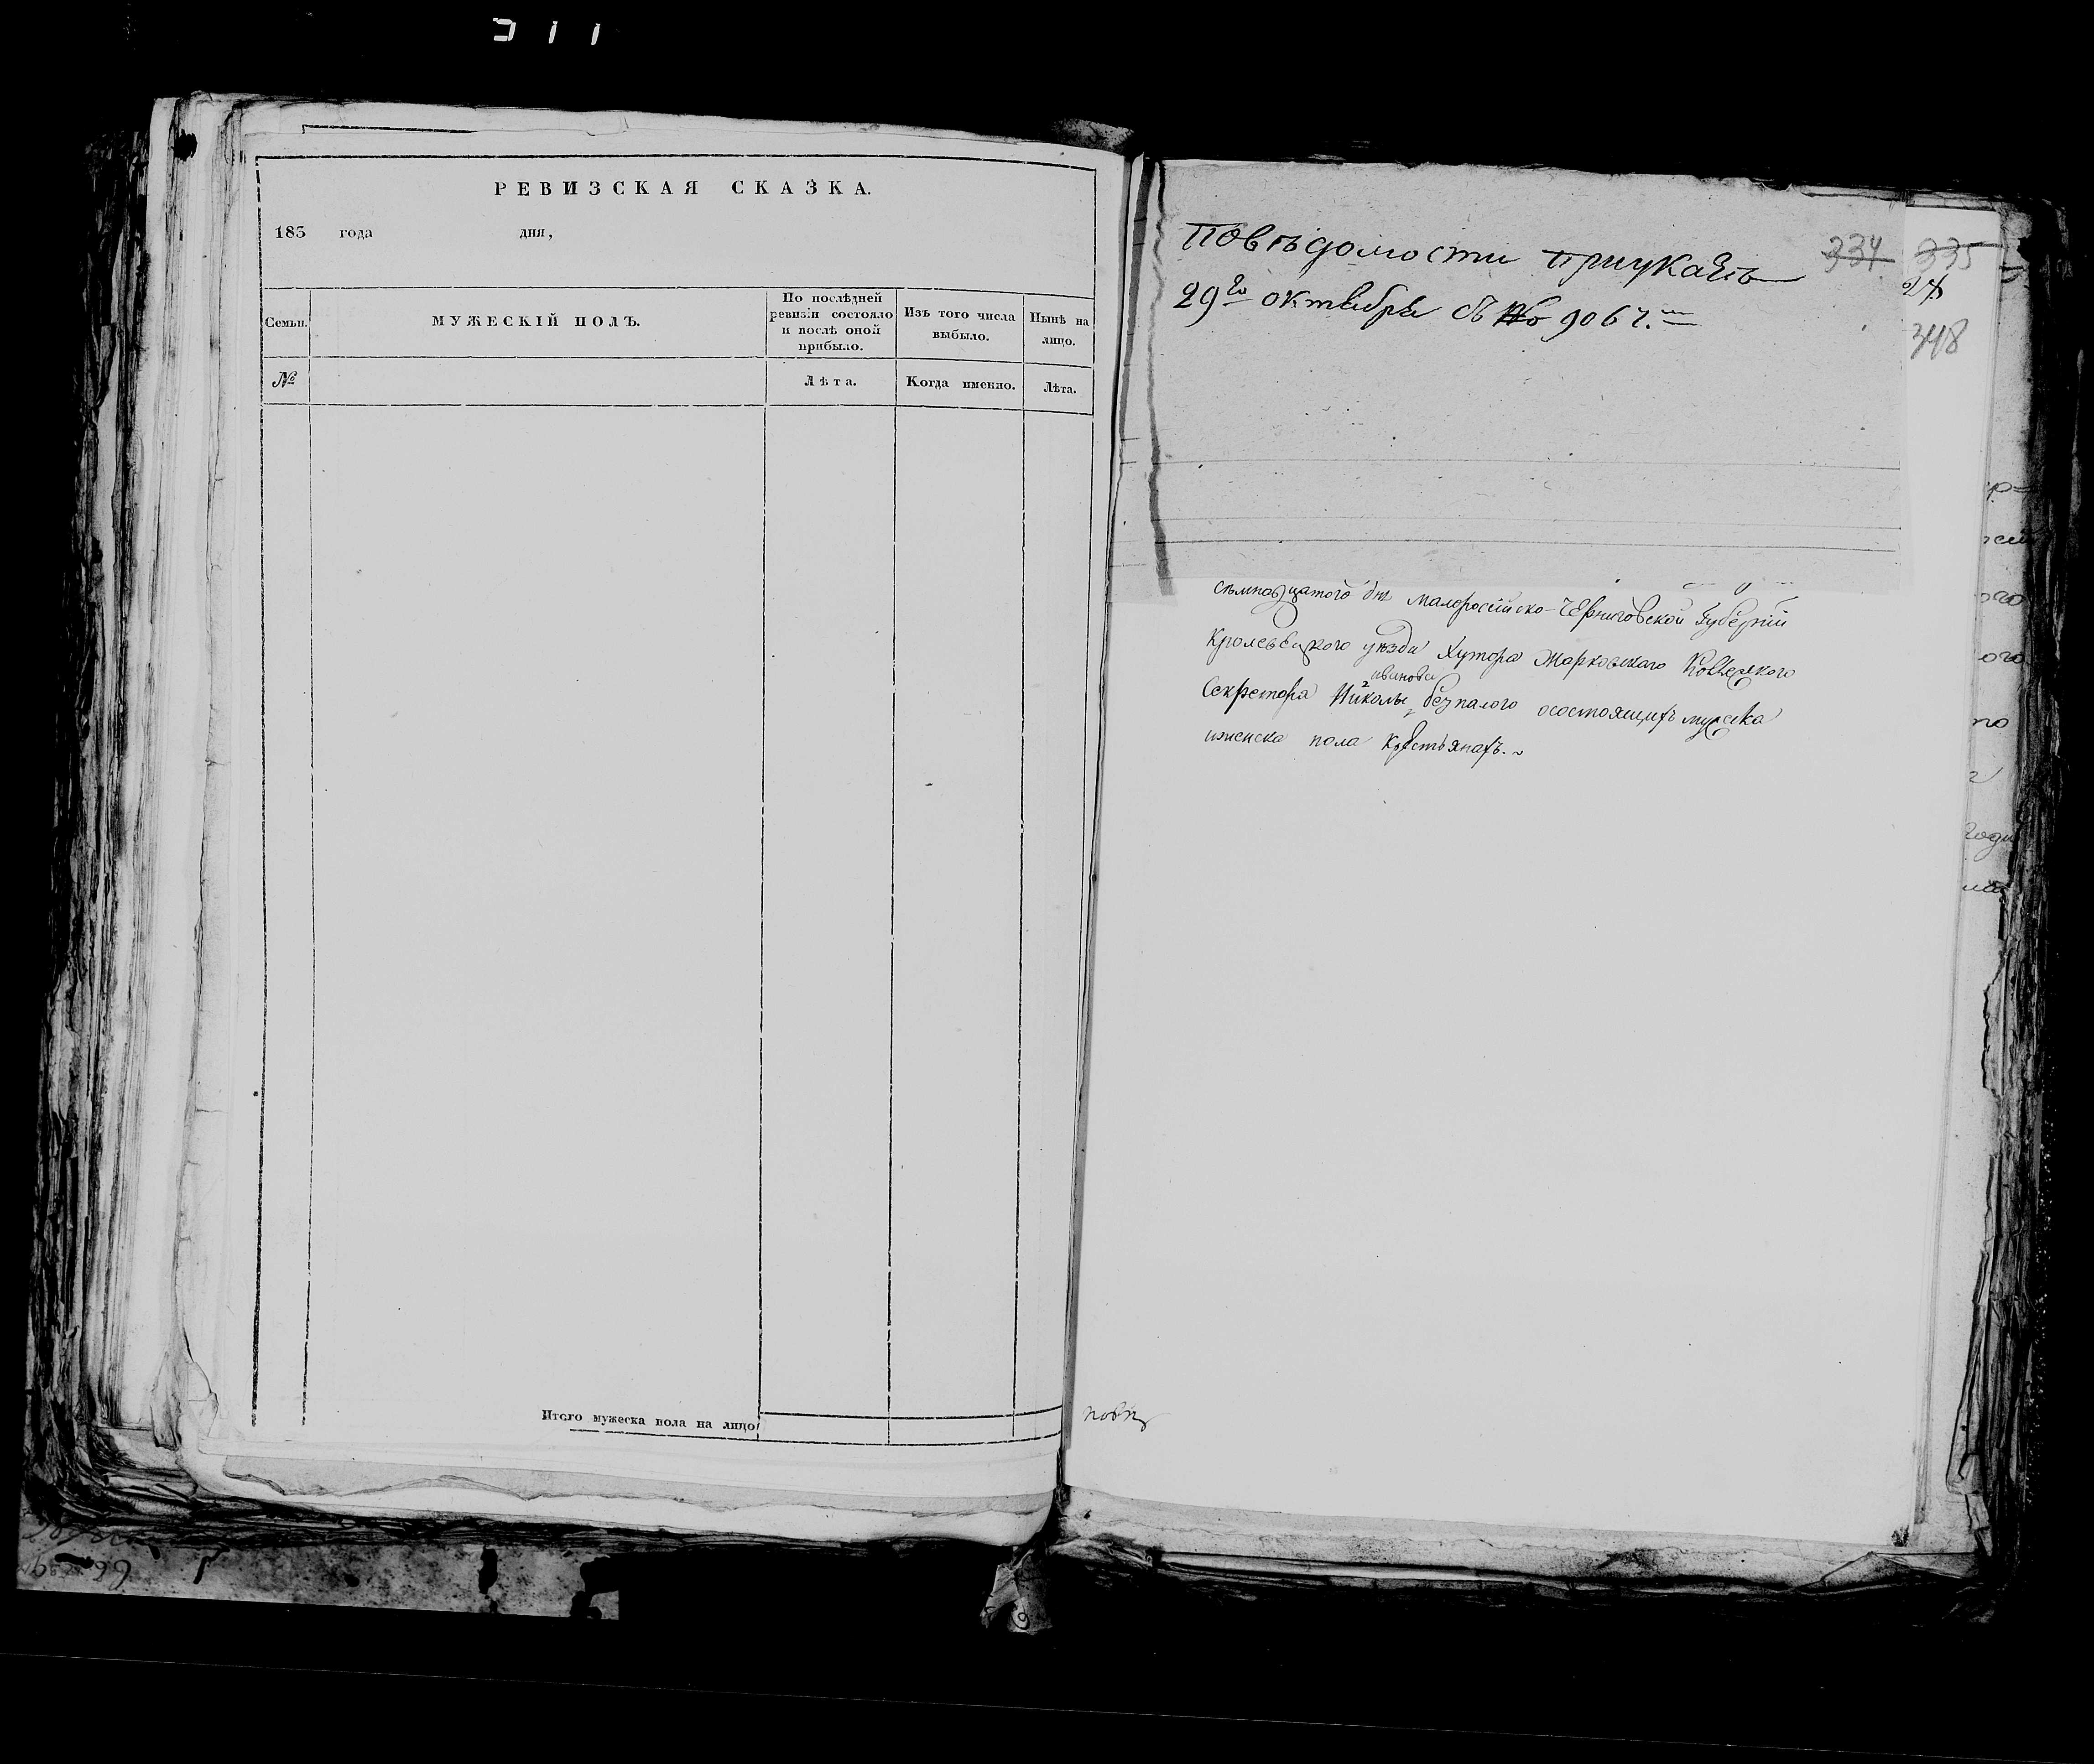 РЕВИЗСКАЯ СКАЗКА.
183 года дня,
Семьи.
МУЖЕСКІЙ ПОЛЪ.
По послѣдней
ревизіи состояло
и послѣ оной
прибыло.
Изъ того числа
выбыло.
Нынѣ на
лицо.
№
Лѣта.
Когда именно.
Лѣта.
Итого мужеска пола на лицо
повѣдомости приуказѣ
29го октября съ № 9067.
334
335
348
семнадцатого дня Малоросійско-Черниговской Губерніи
Кролевецкого уѣзда Хутора Марковского
иванова
Секретора Николы безпалого осостоящихъ мужеска
иженска пола крестьянахъ.